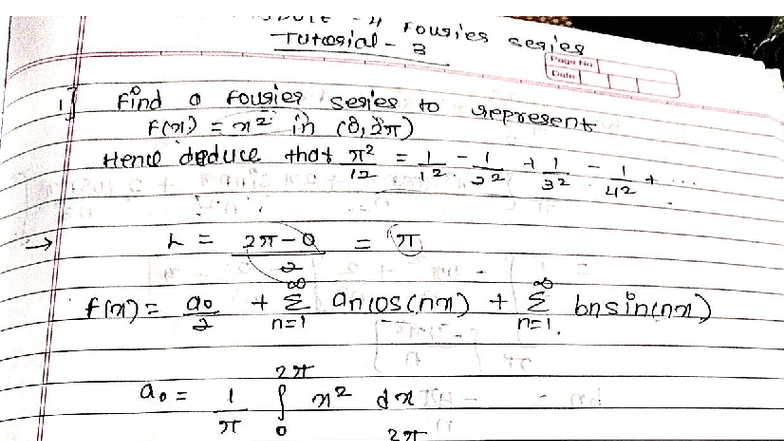 Module - 4 Fourier series
Tutorial - 3
Page No
Date
1] Find a fourier series to represent
f(x) = x² in (0, 2π)
Hence deduce that π²/12 = 1/1² - 1/2² + 1/3² - 1/4² + ...
→ L = (2π - 0)/2 = π
f(x) = a₀/2 + Σ_{n=1}^{∞} an cos(nx) + Σ_{n=1}^{∞} bn sin(nx)
a₀ = 1/π ∫_0^{2π} x² dx
2π